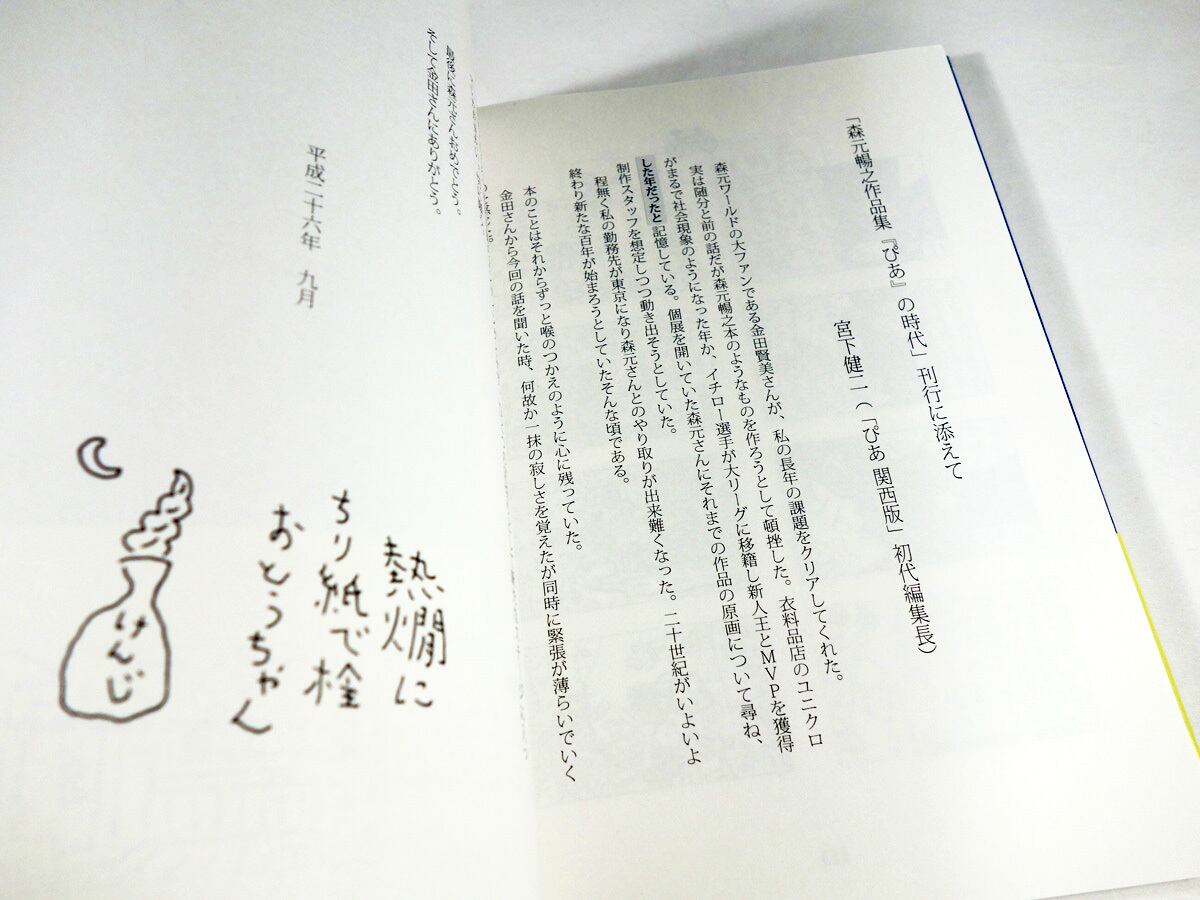 「森元暢之作品集『ぴあ』の時代」刊行に添えて
宮下健二(「ぴあ関西版」初代編集長)
森元ワールドの大ファンである金田賢美さんが、私の長年の課題をクリアしてくれた。
実は随分と前の話だが森元暢之本のようなものを作ろうとして頓挫した。衣料品店のユニクロ
がまるで社会現象のようになった年か、イチロー選手が大リーグに移籍し新人王とMVPを獲得
した年だったと記憶している。個展を開いていた森元さんにそれまでの作品の原画について尋ね、
制作スタッフを想定しつつ動き出そうとしていた。
程無く私の勤務先が東京になり森元さんとのやり取りが出来難くなった。二十世紀がいよいよ
終わり新たな百年が始まろうとしていたそんな頃である。
本のことはそれからずっと喉のつかえのように心に残っていた。
金田さんから今回の話を聞いた時、何故か一抹の寂しさを覚えたが同時に緊張が薄らいでいく
最後に森元さんおめでとう。
そして金田さんにありがとう。
平成二十六年 九月
熱燗に
ちり紙で栓
おとうちゃん
けんじ